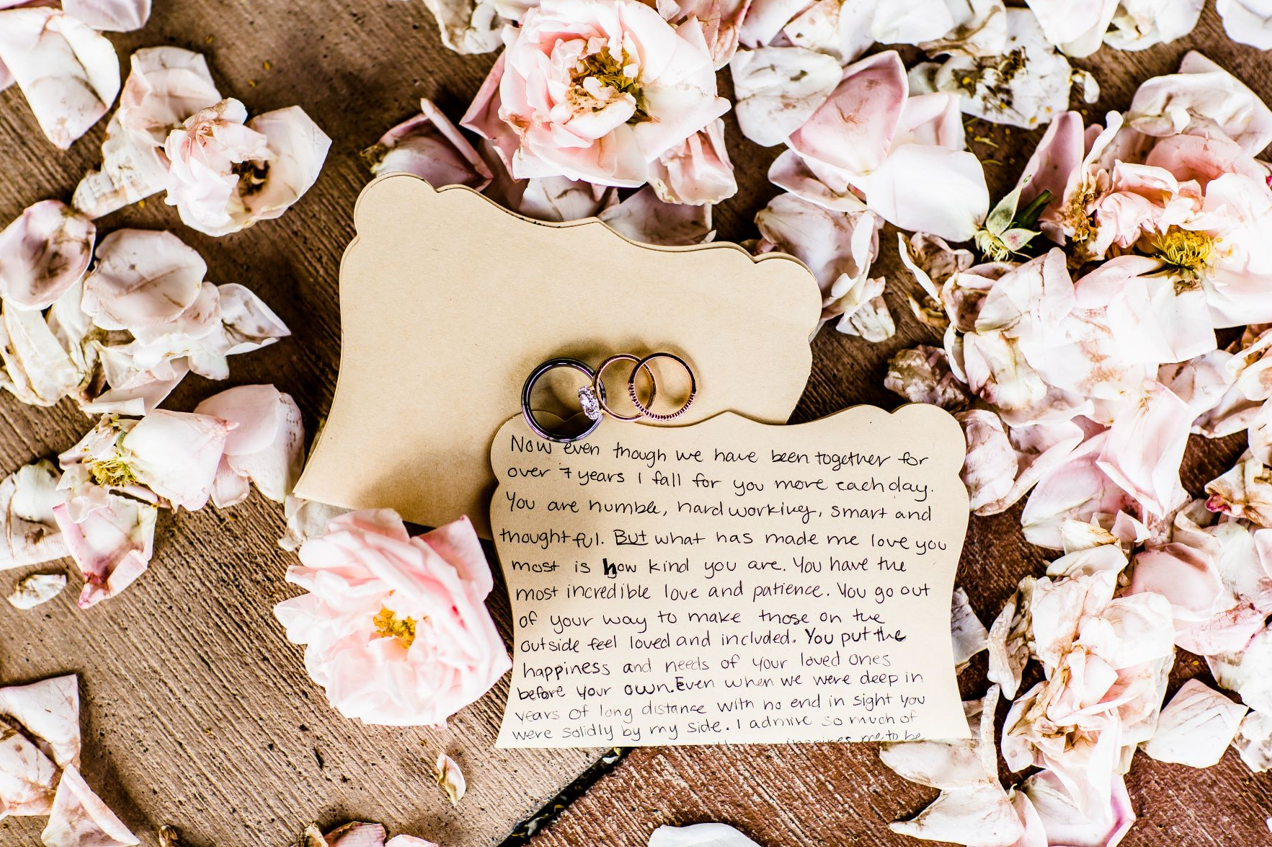 Now even though we have been together for
over 7 years I fall for you more each day.
You are humble, hard working, smart and
thoughtful. But what has made me love you
most is how kind you are. You have the
most incredible love and patience. You go out
of your way to make those on the
outside feel loved and included. You put the
happiness and needs of your loved ones
before your own. Even when we were deep in
years of long distance with no end in sight you
were solidly by my side. I admire so much of
inspires me to be